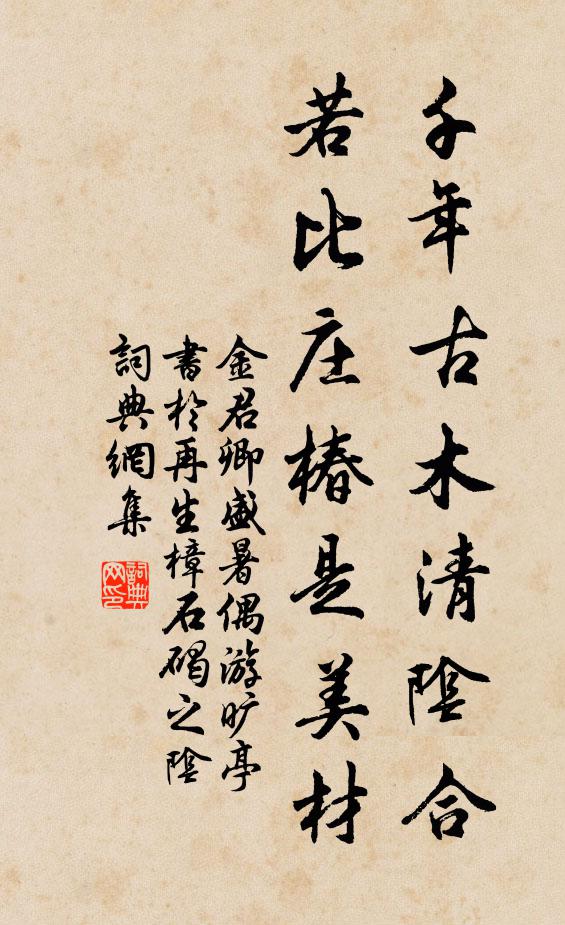 千年古木清陰合
若比庄椿是美材
金君卿盛暑偶游旷亭
書於再生樟石碣之陰
詞典網集
詞典网印